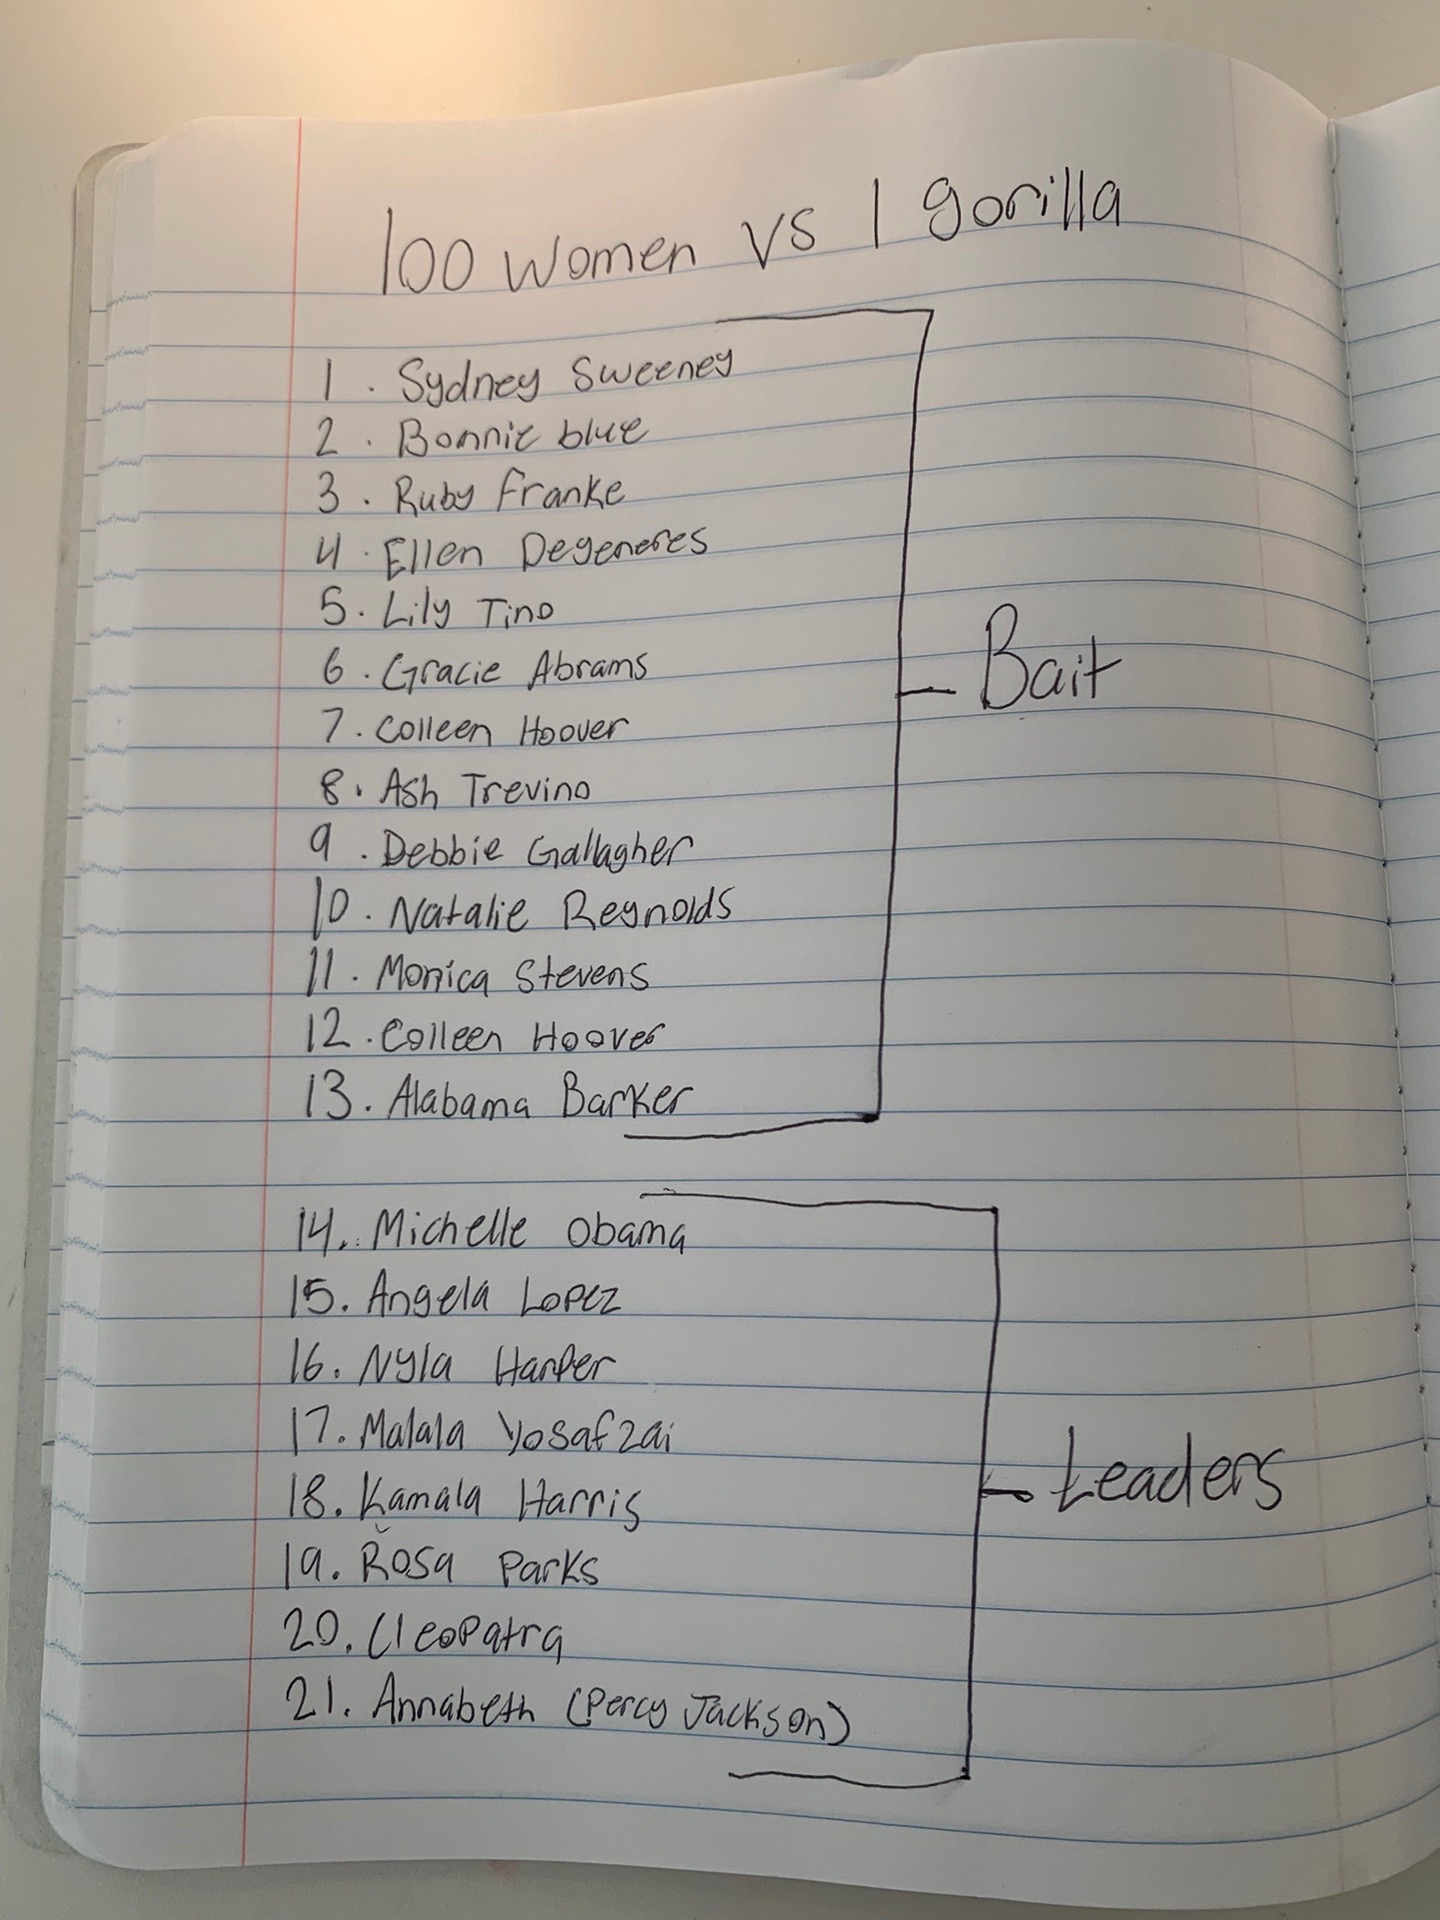 100 women vs 1 gorilla
1. Sydney Sweeney
2. Bonnie blue
3. Ruby Franke
4. Ellen Degeneres
5. Lily Tino
6. Gracie Abrams
7. Colleen Hoover
8. Ash Trevino
9. Debbie Gallagher
10. Natalie Reynolds
11. Monica Stevens
12. Colleen Hoover
13. Alabama Barker
Bait
14. Michelle Obama
15. Angela Lopez
16. Nyla Harper
17. Malala Yosafzai
18. Kamala Harris
19. Rosa Parks
20. Cleopatra
21. Annabeth (Percy Jackson)
Leaders